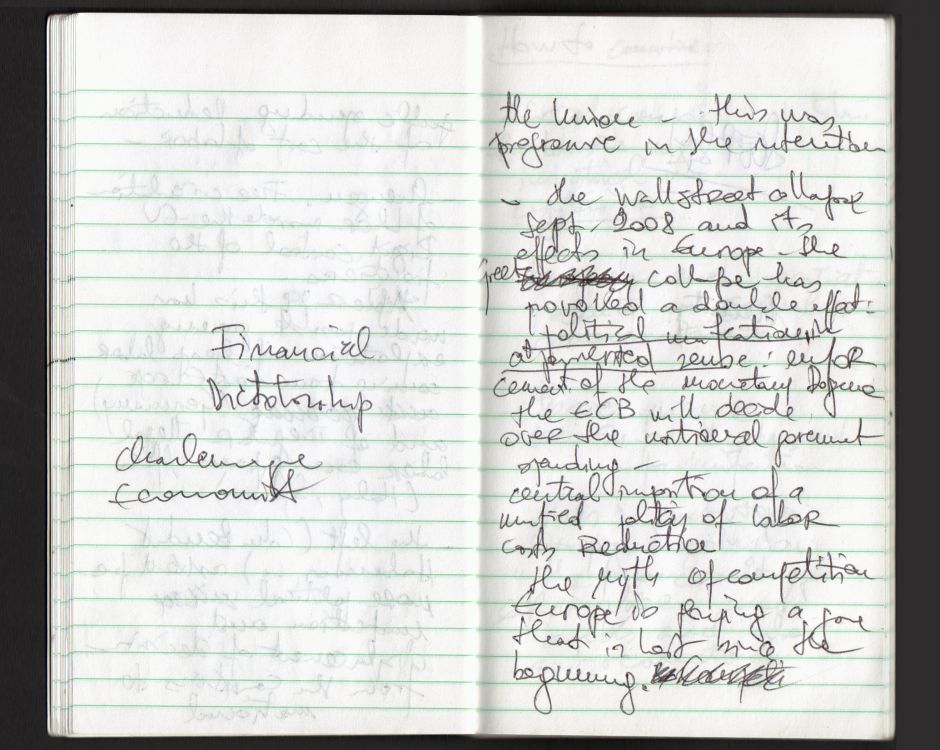 Financial
Dictatorship
Charlemagne
Economist
the Union - this was
programme in the intention
- the Wallstreet collapse
Sept. 2008 and its
effects in Europe - the
collapse has
provoked a double effect:
political unification in
a sense: enfor
cement of the monetary Dogma
the ECB will decide
over the national government
spending -
central imposition of a
unified policy of labor
costs Reduction
the myth of competition
Europe is playing a game
that is lost since the
beginning.